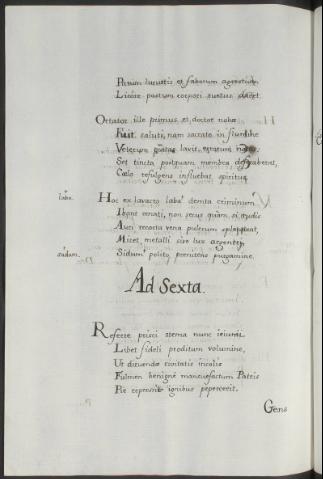 Parum locustis et favorum agrestium
Liquore pastum corpori suetus dabat.
Ortator ille primus et doctor novæ
Fuit saluti, nam sacrato in flumine
Veterum lavit, errorum
Set tincta postquam membra
Cœlo refulgens influebat spiritus
Hoc ex lavacro labe dempta criminum
Ibant renati, non secus quam si rudis
Auri recocta vena pulcrum
Micet metalli sive lux argentei
Sidum polito prænitens purgamine,
Ad Sexta.
Referre prisci stema nunc ieiunii
Libet fideli proditum volumine,
Ut diruendæ civitatis incolis
Fulmen benigne mansuefactum Patris
Pie repressis ignibus pepercerit.
Gens